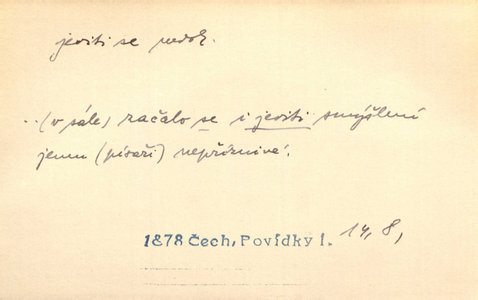 jeviti se nedok.
..(v sále) začalo se i jeviti smýšlení
jemu (písaři) nepříznivé.
1878 Čech, Povídky I. 14, 8,